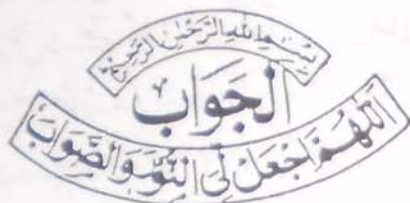 بِسْمِ اللهِ الرَّحْمٰنِ الرَّحِيْمِ
الجَوَابُ
اَللّٰهُمَّ اجْعَلْ لِی النُّوْرَ وَالصَّوَابَ